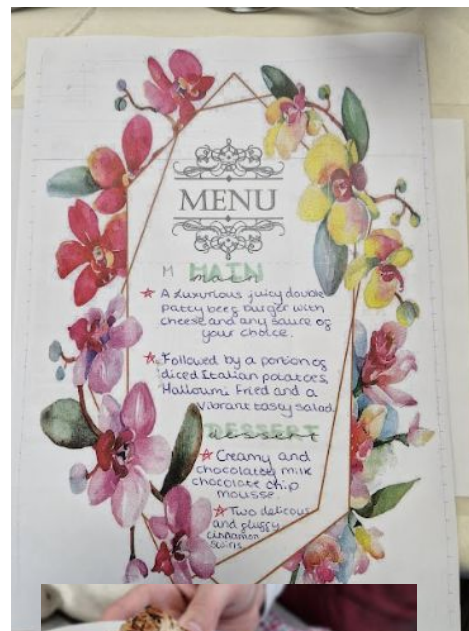 MENU
M MAIN
main
★ A luxurious juicy double
patty beef burger with
cheese and any sauce of
your choice.
★ Followed by a portion of
diced Italian potatoes,
Halloumi Fried and a
vibrant tasty salad
DESSERT
dessert
★ Creamy and
chocolatey milk
chocolate chip
mousse
★ Two delicous
and fluffy
cinnamon
swirls